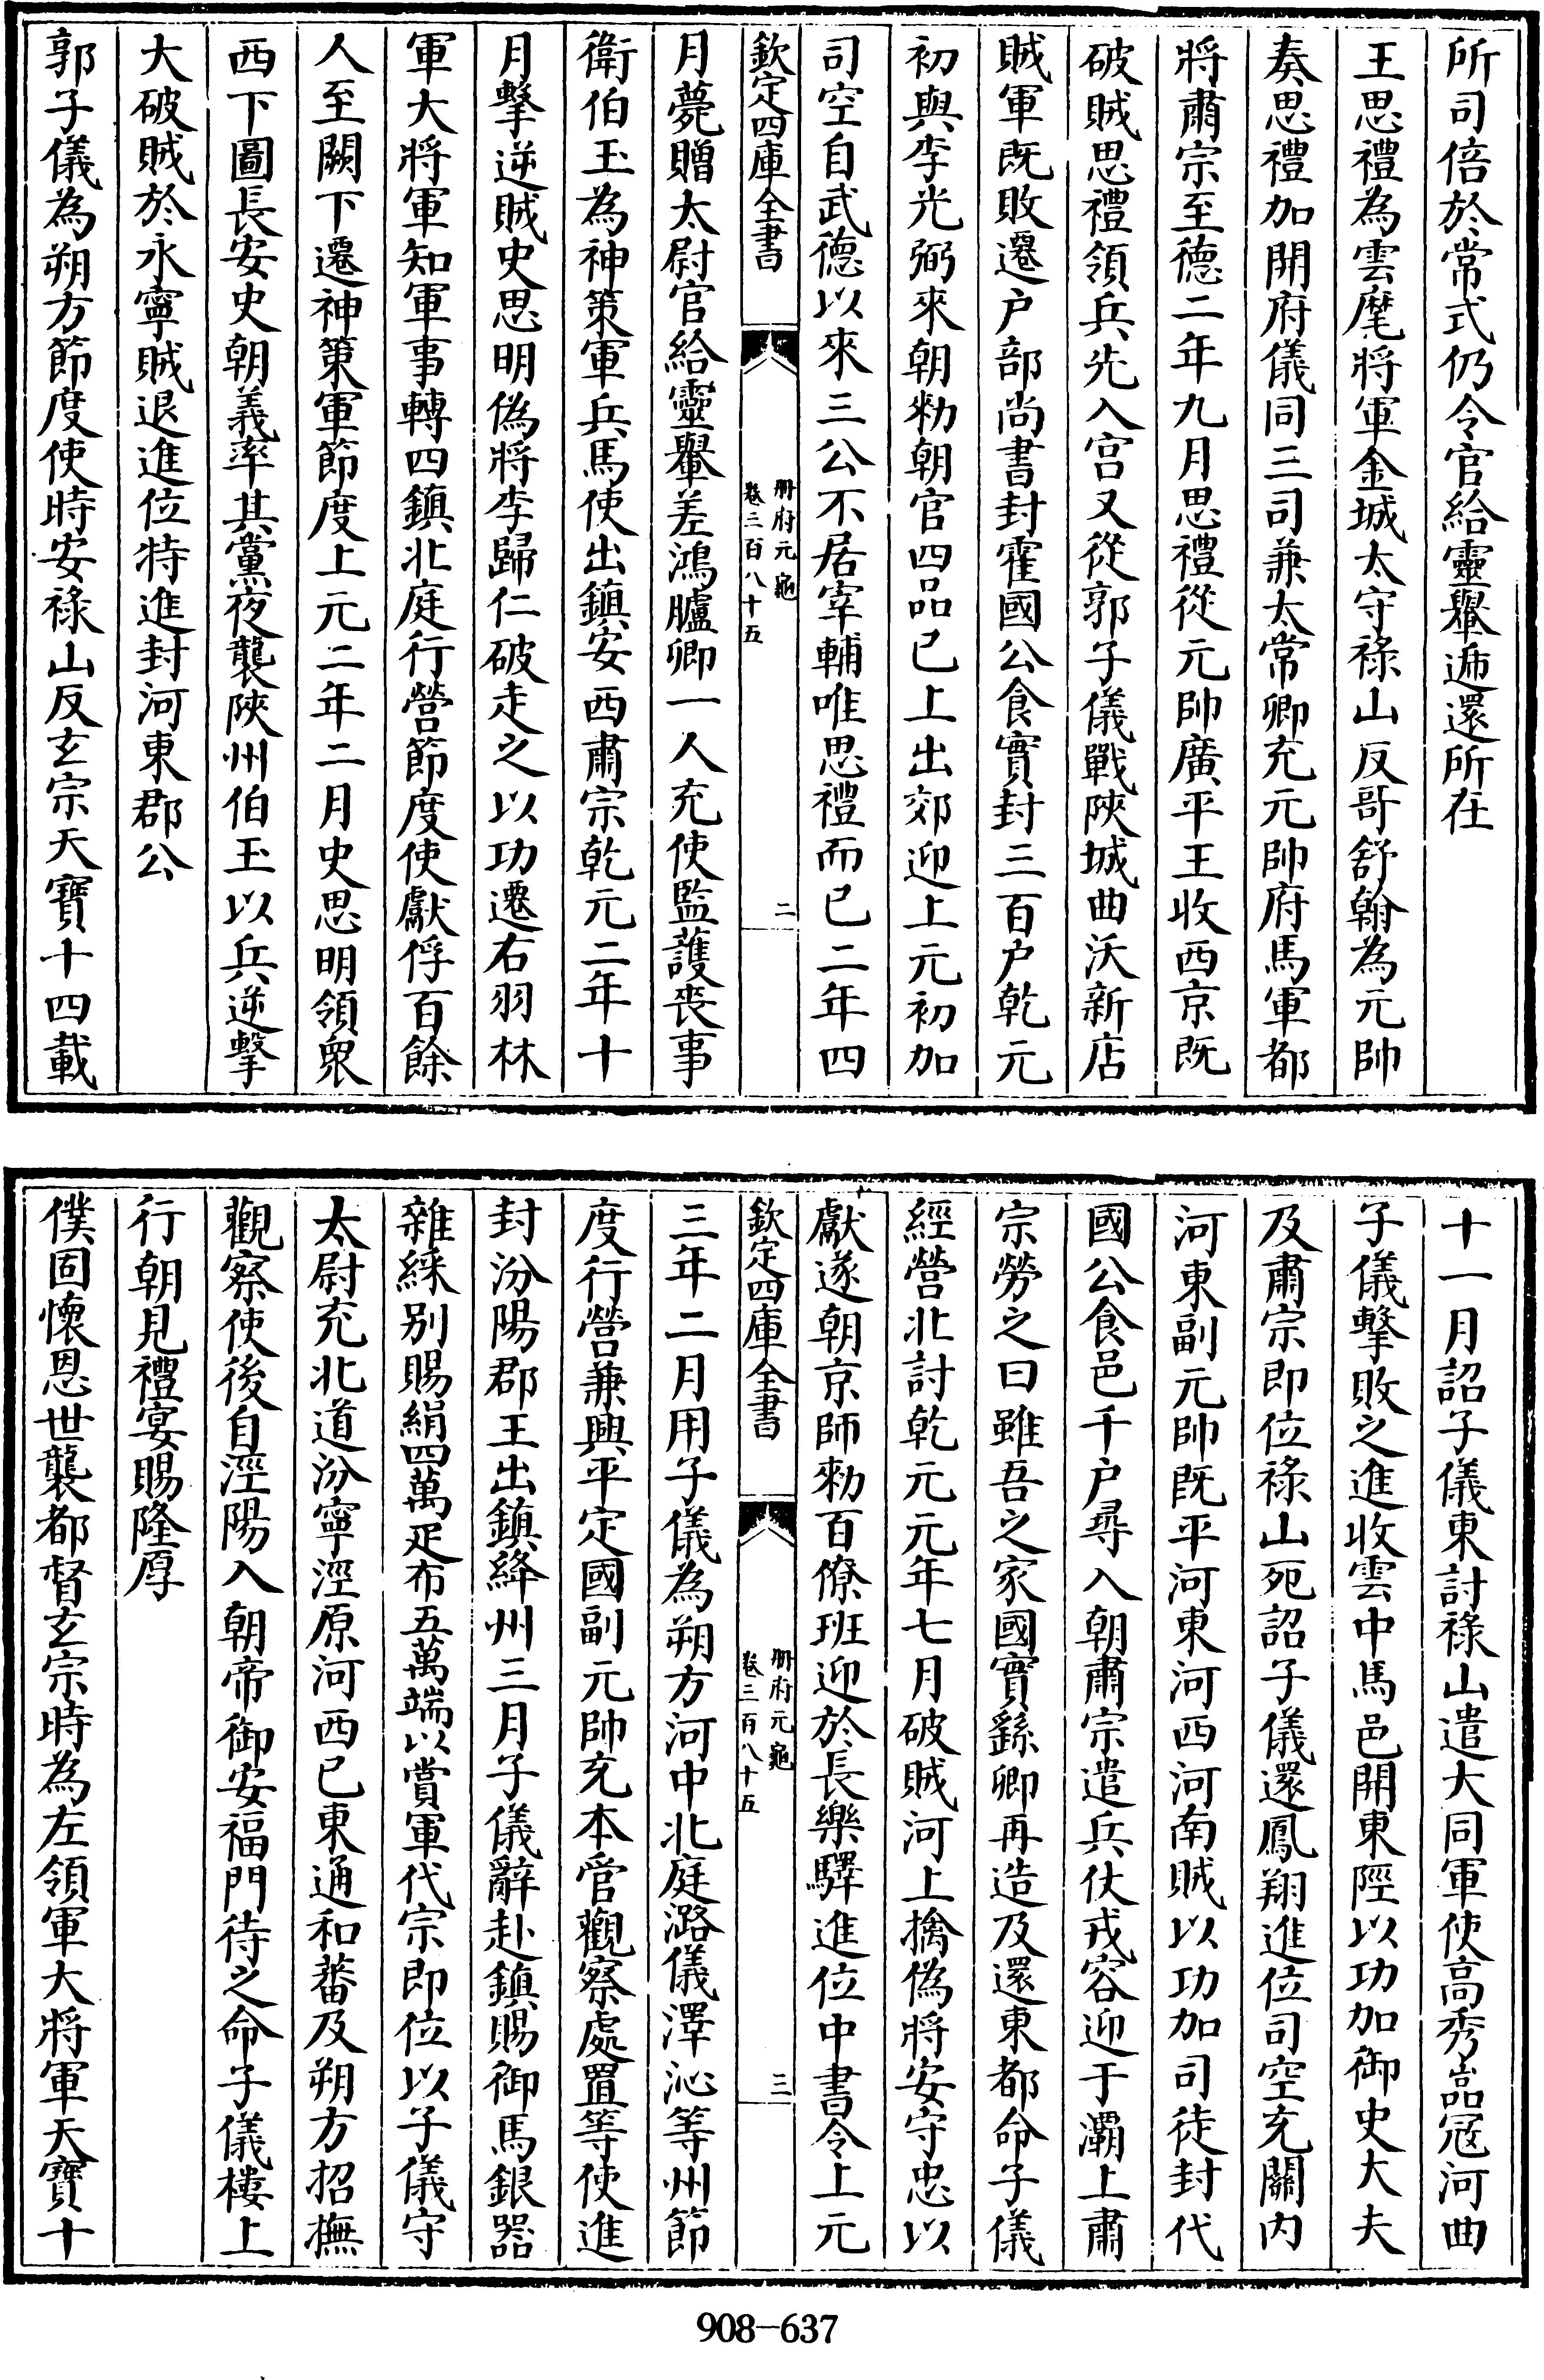 所司倍於常式仍令官給靈轝遞還所在
王思禮為雲麾將軍金城太守祿山反哥舒翰為元帥
奏思禮加開府儀同三司兼太常卿充元帥府馬軍都
將肅宗至德二年九月思禮從元帥廣平王收西京既
破賊思禮領兵先入宫又從郭子儀戰陝城曲沃新店
賊軍既敗遷户部尚書封霍國公食實封三百户乾元
初與李光弼來朝勑朝官四品已上出郊迎上元初加
司空自武德以來三公不居宰輔唯思禮而已二年四
欽定四庫全書
冊府元龜
卷三百八十五
二
月薨贈太尉官給靈轝差鴻臚卿一人充使監護喪事
衛伯玉為神策軍兵馬使出鎮安西肅宗乾元二年十
月擊逆賊史思明偽將李歸仁破走之以功遷右羽林
軍大將軍知軍事轉四鎮北庭行營節度使獻俘百餘
人至闕下遷神策軍節度上元二年二月史思明領眾
西下圖長安史朝義率其黨夜襲陝州伯玉以兵逆擊
大破賊於永寧賊退進位特進封河東郡公
郭子儀為朔方節度使時安祿山反玄宗天寶十四載
十一月詔子儀東討祿山遣大同軍使高秀嵓冦河曲
子儀擊敗之進收雲中馬邑開東陘以功加御史大夫
及肅宗即位祿山死詔子儀還鳳翔進位司空充關内
河東副元帥既平河東河西河南賊以功加司徒封代
國公食邑千户尋入朝肅宗遣兵仗戎容迎于灞上肅
宗勞之曰雖吾之家國實繇卿再造及還東都命子儀
經營北討乾元元年七月破賊河上擒偽將安守忠以
獻遂朝京師勑百僚班迎於長樂驛進位中書令上元
欽定四庫全書
冊府元龜
卷三百八十五
三
三年二月用子儀為朔方河中北庭潞儀澤沁等州節
度行營兼興平定國副元帥充本管觀察處置等使進
封汾陽郡王出鎮絳州三月子儀辭赴鎮賜御馬銀器
雜綵别賜絹四萬疋布五萬端以賞軍代宗即位以子儀守
太尉充北道汾寧涇原河西已東通和蕃及朔方招撫
觀察使後自涇陽入朝帝御安福門待之命子儀樓上
行朝見禮宴賜隆厚
僕固懷恩世襲都督玄宗時為左領軍大將軍天寶十
908-637